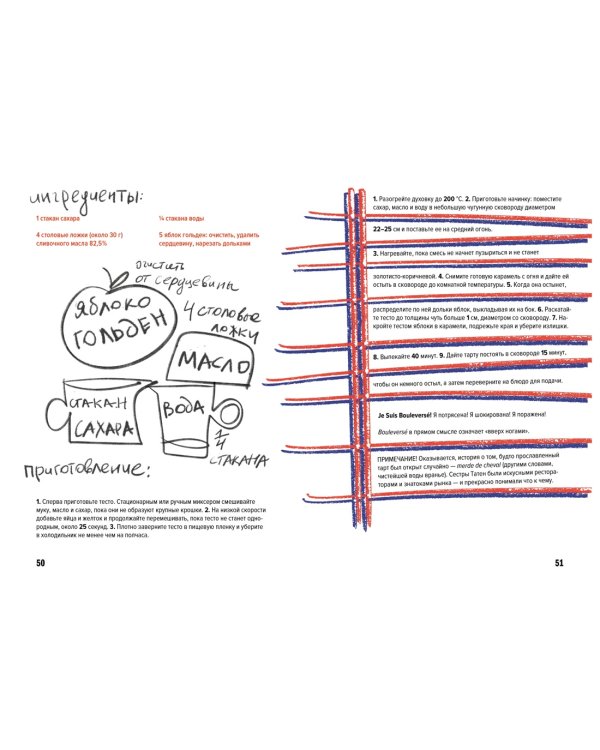 ингредиенты:
1 стакан сахара
¼ стакана воды
4 столовые ложки (около 30 г)
сливочного масла 82,5%
5 яблок гольден: очистить, удалить
сердцевину, нарезать дольками
очистить
от сердцевины
яблоко
гольден
4 столовые
ложки
масло
стакан
сахара
вода
1/4
стакана
приготовление:
1. Сперва приготовьте тесто. Стационарным или ручным миксером смешивайте
муку, масло и сахар, пока они не образуют крупные крошки. 2. На низкой скорости
добавьте яйца и желток и продолжайте перемешивать, пока тесто не станет одно-
родным, около 25 секунд. 3. Плотно заверните тесто в пищевую пленку и уберите
в холодильник не менее чем на полчаса.
50
1. Разогрейте духовку до 200 °C. 2. Приготовьте начинку: поместите
сахар, масло и воду в небольшую чугунную сковороду диаметром
22–25 см и поставьте ее на средний огонь.
3. Нагревайте, пока смесь не начнет пузыриться и не станет
золотисто-коричневой. 4. Снимите готовую карамель с огня и дайте ей
остыть в сковороде до комнатной температуры. 5. Когда она остынет,
распределите по ней дольки яблок, выкладывая их на бок. 6. Раскатай-
те тесто до толщины чуть больше 1 см, диаметром со сковороду. 7. На-
кройте тестом яблоки в карамели, подрежьте края и уберите излишки.
8. Выпекайте 40 минут. 9. Дайте тарту постоять в сковороде 15 минут,
чтобы он немного остыл, а затем переверните на блюдо для подачи.
Je Suis Bouleversé! Я потрясена! Я шокирована! Я поражена!
Bouleversé в прямом смысле означает «вверх ногами».
ПРИМЕЧАНИЕ! Оказывается, история о том, будто прославленный
тарт был открыт случайно — merde de cheval (другими словами,
чистейшей воды вранье). Сестры Татен были искусными рестора-
торами и знатоками рынка — и прекрасно понимали что к чему.
51